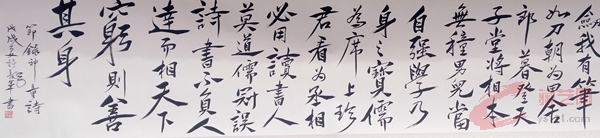 劍我有筆
如刀朝為田舍
郎暮登天
子堂將相本
無種男兒當
自強學乃
身之寶儒
為席上珍
君看為丞相
必用讀書人
莫道儒冠誤
詩書不負人
達而相天下
窮則善
其身
節錄神童詩